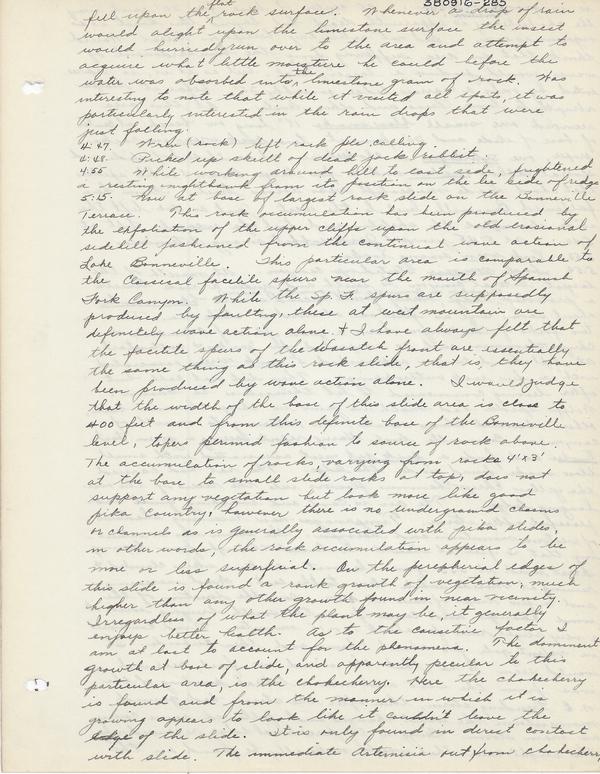 380916-285
fell upon the flat rock surface. Whenever a drop of rain
would alight upon the limestone surface the insect
would hurriedly run over to the area and attempt to
acquire what little moisture he could before the
water was absorbed into the limestone gram of rock. Was
interesting to note that while it visited all spots, it was
particularly interested in the rain drops that were
just falling.
4:47. Wren (rock) left rock pile calling.
4:48. Picked up skull of dead jack rabbit.
4:55 While working around hill to east side, frightened
a resting nighthawk from its position on the lee side of ridge
5:15. Now at base of largest rock slide on the Bonneville
Terrace. This rock accumulation has been produced by
the exfoliation of the upper cliffs upon the old erosional
sidehill fashioned from the continual wave action of
Lake Bonneville. This particular area is comparable to
the Classical facetile spurs near the mouth of Spanish
Fork Canyon. While the Sp. F. spurs are supposedly
produced by faulting, these at west mountain are
definitely wave action alone. & I have always felt that
the facetile spurs of the Wasatch front are essentially
the same thing as this rock slide, that is, they have
been produced by wave action alone. I would judge
that the width of the base of this slide area is close to
400 feet and from this definite base of the Bonneville
level, tapers permid fashion to source of rock above.
The accumulation of rocks, varying from rocks 4'x3'
at the base to small slide rocks at top, does not
support any vegetation but look more like good
pika country, however there is no underground chasms
or channels as is generally associated with pika slides,
in other words, the rock accumulation appears to be
more or less superficial. On the peripherial edges of
this slide is found a rank growth of vegetation, much
higher than any other growth found in near vicinity.
Irregardless of what the plant may be, it generally
enjoys better health. As to the causitive factor I
am at lost to account for the phenomena. The dominent
growth at base of slide, and apparently peculur to this
particular area, is the chokecherry. Here the chokecherry
is found and from the manner in which it is
growing appears to look like it couldn't leave the
edge of the slide. It is only found in direct contact
with slide. The immediate Artemisia out from chokecherry